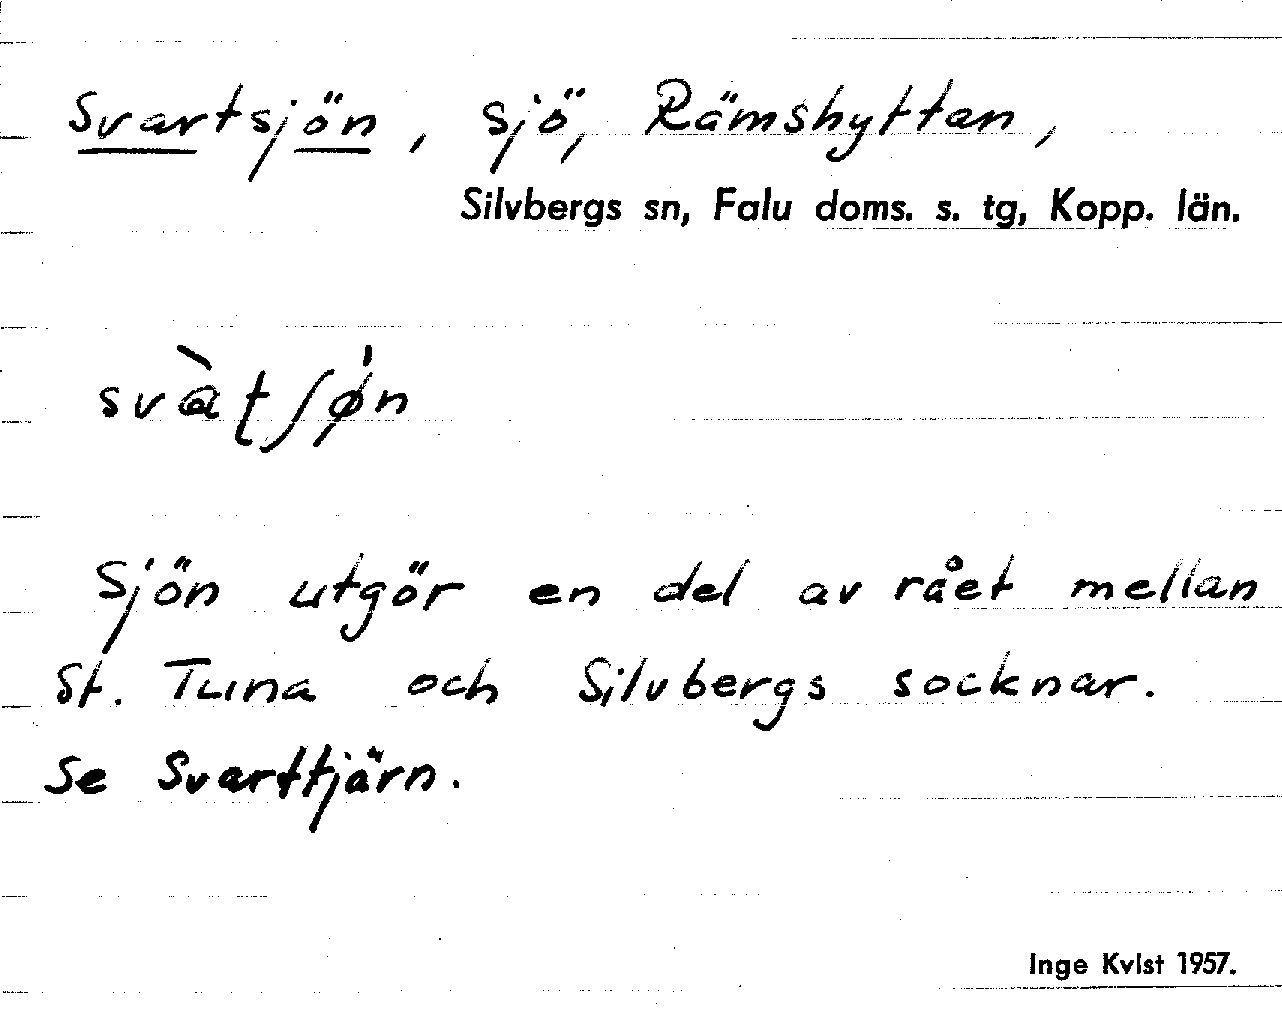 Svartsjön, sjö, Rämshyttan,
Silvbergs sn, Falu doms. s. tg, Kopp. län.
svàʈʃø̍n
Sjön utgör en del av rået mellan
St. Tuna och Silvbergs socknar.
Se Svarttjärn.
Inge Kvist 1957.